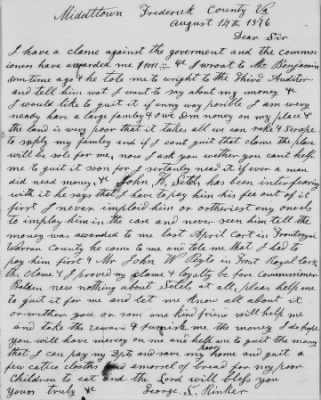 Middttown Frederick County Va
August 14th 1876
Dear Sir
I have a clame against the goverment and the commis
ioners have awarded me $ & I wroat to Mr Benjamin
som time ago & he tole me to wright to the Third Auditor
and tell him wat I want to say about my money &
I would like to guit it if enny way posible I am very
neady have a large famley & owe som money on my place &
the land is very poor that it takes all we can rake & scrape
to suply my famley and if I cant guit that clame the place
will be sole for me, now I ask you wether you cant help
me to guit it soon for I sertanley nead it if ever a man
did nead money & John S. has been interfearing
with it he says that I have to pay him his fee out of it
first I never imploid him or outherised eny one els
to imploy him in the case and never seen him till the
money was awarded to me last April Cort in Frontroyal
Warran County he come to me and tole me that I had to
pay him first & Mr John W in Front Royal took
the clame & I proved my clame & loyalty be fore commissioner
new nothing about at all, pleas help me
to guit it for me and let me know all about it
or wether you or som one kind friend will help me
and take the & furnish me the money I do hope
you will have mercy on me and help me to guit the money
that I can pay my dpts and save my poor home and guit a
few calico cloaths and a morrel of bread for my poor
Children to eat and the Lord will bless you
Yours truly &c George S. Rinker